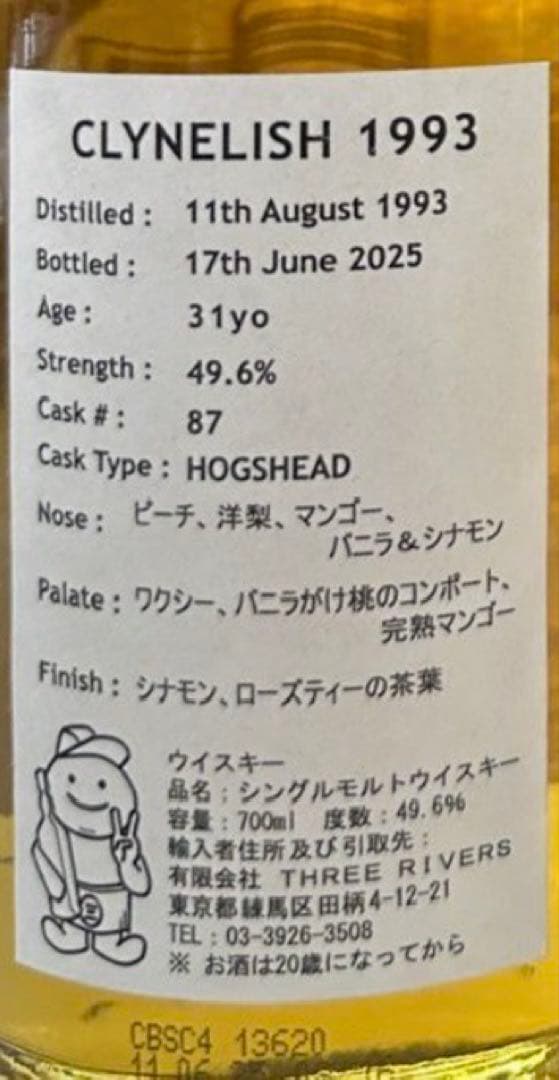 CLYNELISH 1993
Distilled : 11th August 1993
Bottled : 17th June 2025
Age : 31yo
Strength : 49.6%
Cask # : 87
Cask Type : HOGSHEAD
Nose : ピーチ、洋梨、マンゴー、
バニラ&シナモン
Palate : ワクシー、バニラがけ桃のコンポート、
完熟マンゴー
Finish : シナモン、ローズティーの茶葉
ウイスキー
品名 : シングルモルトウイスキー
容量 : 700ml 度数 : 49.6%
輸入者住所及び引取先 :
有限会社 THREE RIVERS
東京都練馬区田柄4-12-21
TEL : 03-3926-3508
※ お酒は20歳になってから
CBSC4 13620
11.06